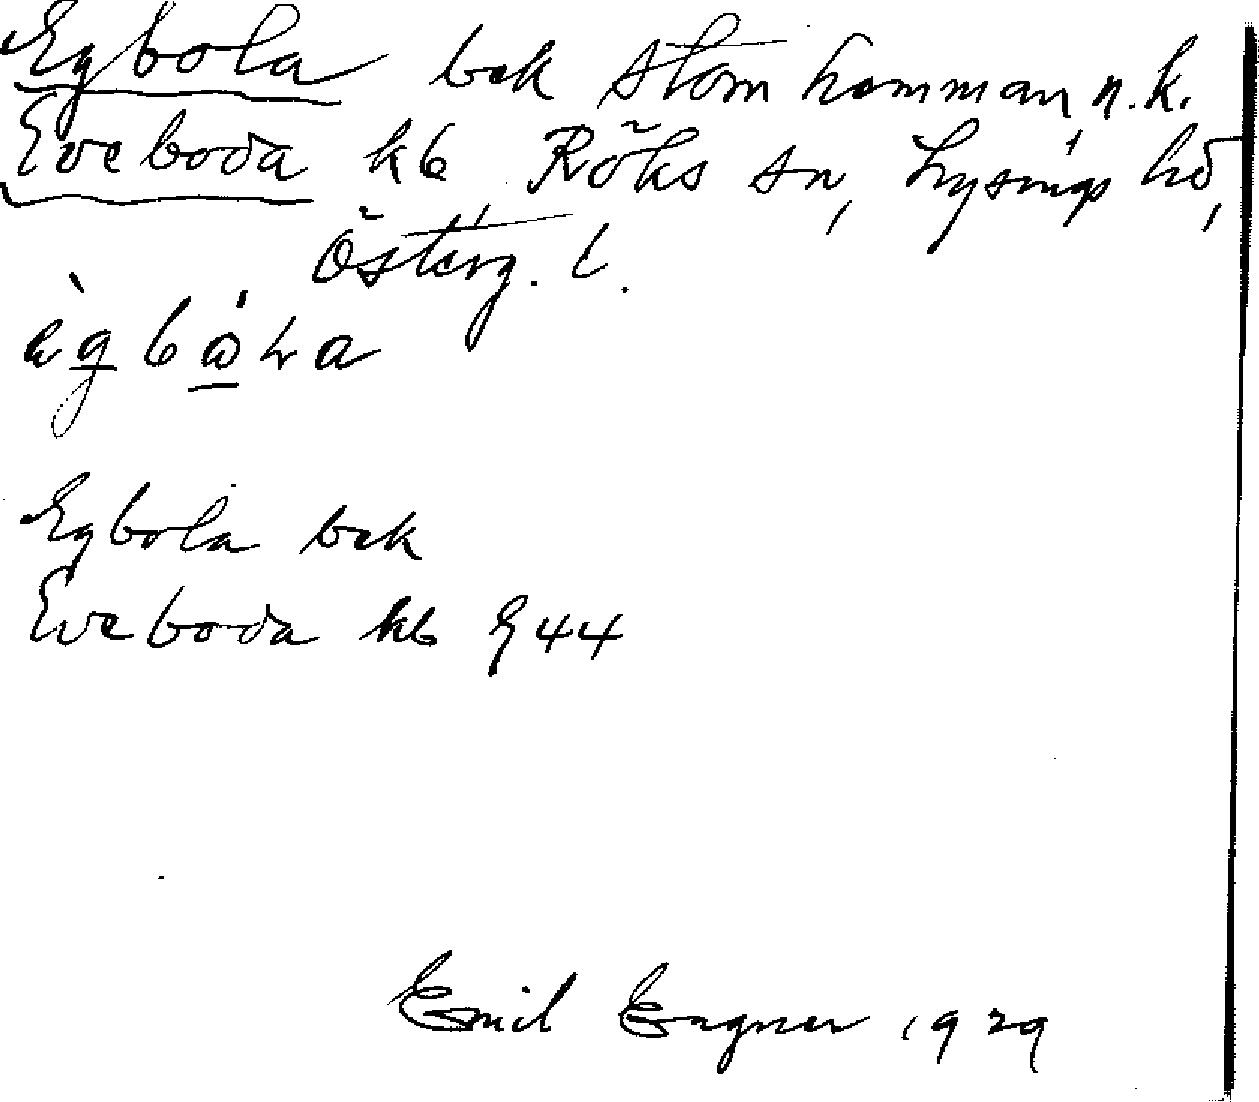 Egbola bek stom hemman, n.k.
Eveboda kb, Röks sn, Lysings hd,
Österg. l.
ègbòla
Egbola bek
Eveboda kb § 44
Emil Engner 1929